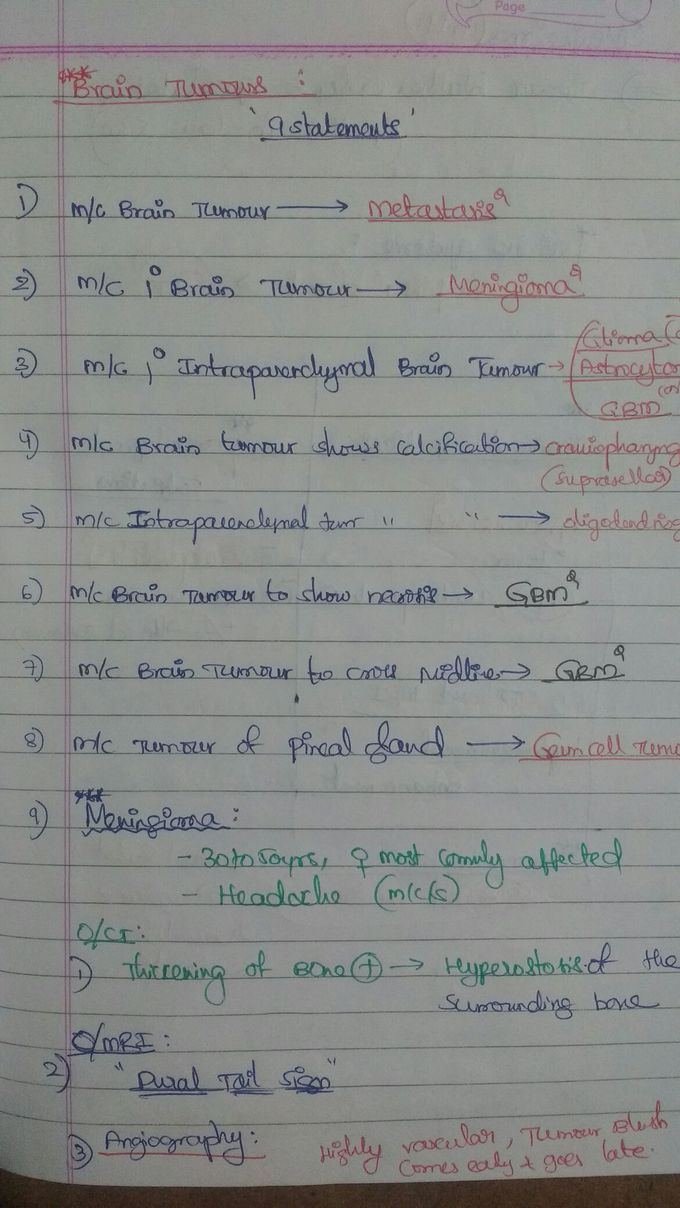 Page
*** Brain Tumours :
'9 statements'
1) m/c Brain Tumour → Metastasis Q
2) m/c 1° Brain Tumour → Meningioma Q
3) m/c 1° Intraparenchymal Brain Tumour → Glioma (
Astrocytom
(or)
GBM
4) m/c Brain tumour shows calcification → craniopharyng
(suprasellar)
5) m/c Intraparenchymal tumr " " → oligodendrog
6) m/c Brain Tumour to show necrosis → GBM Q
7) m/c Brain Tumour to cross Midline → GBM Q
8) m/c Tumour of Pineal gland → Germ cell Tumo
9) *** Meningioma :
- 30 to 50yrs, ♀ most comnly affected
- Headache (m/c/s)
O/CT :
1) Thickening of Bone (+) → Hyperostosis of the
surrounding bone
O/MRI :
2) "Dural Tail Sign"
3) Angiography : Highly vascular, Tumour Blush
comes ealy + goes late.